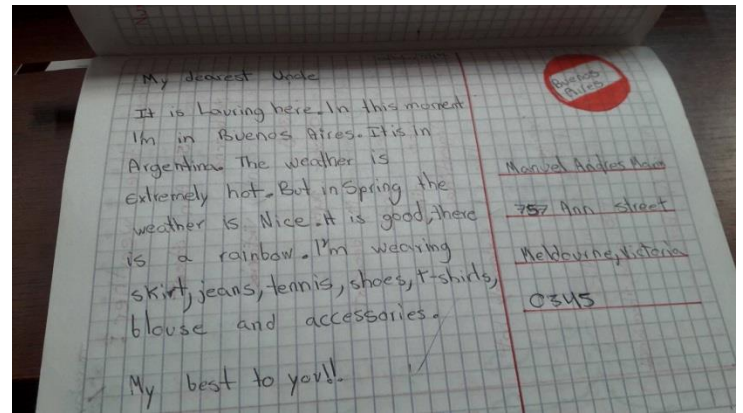 My dearest Uncle
It is Lauring here. In this moment
I'm in Buenos Aires. It is in
Argentina. The weather is
extremely hot. But in Spring the
weather is Nice. It is good, there
is a rainbow. I'm wearing
skirt, jeans, tennis, shoes, t-shirts,
blouse and accessories.
My best to you!!.
Buenos
Aires
Manuel Andres
757 Ann street
Melbourne, Victoria
0345